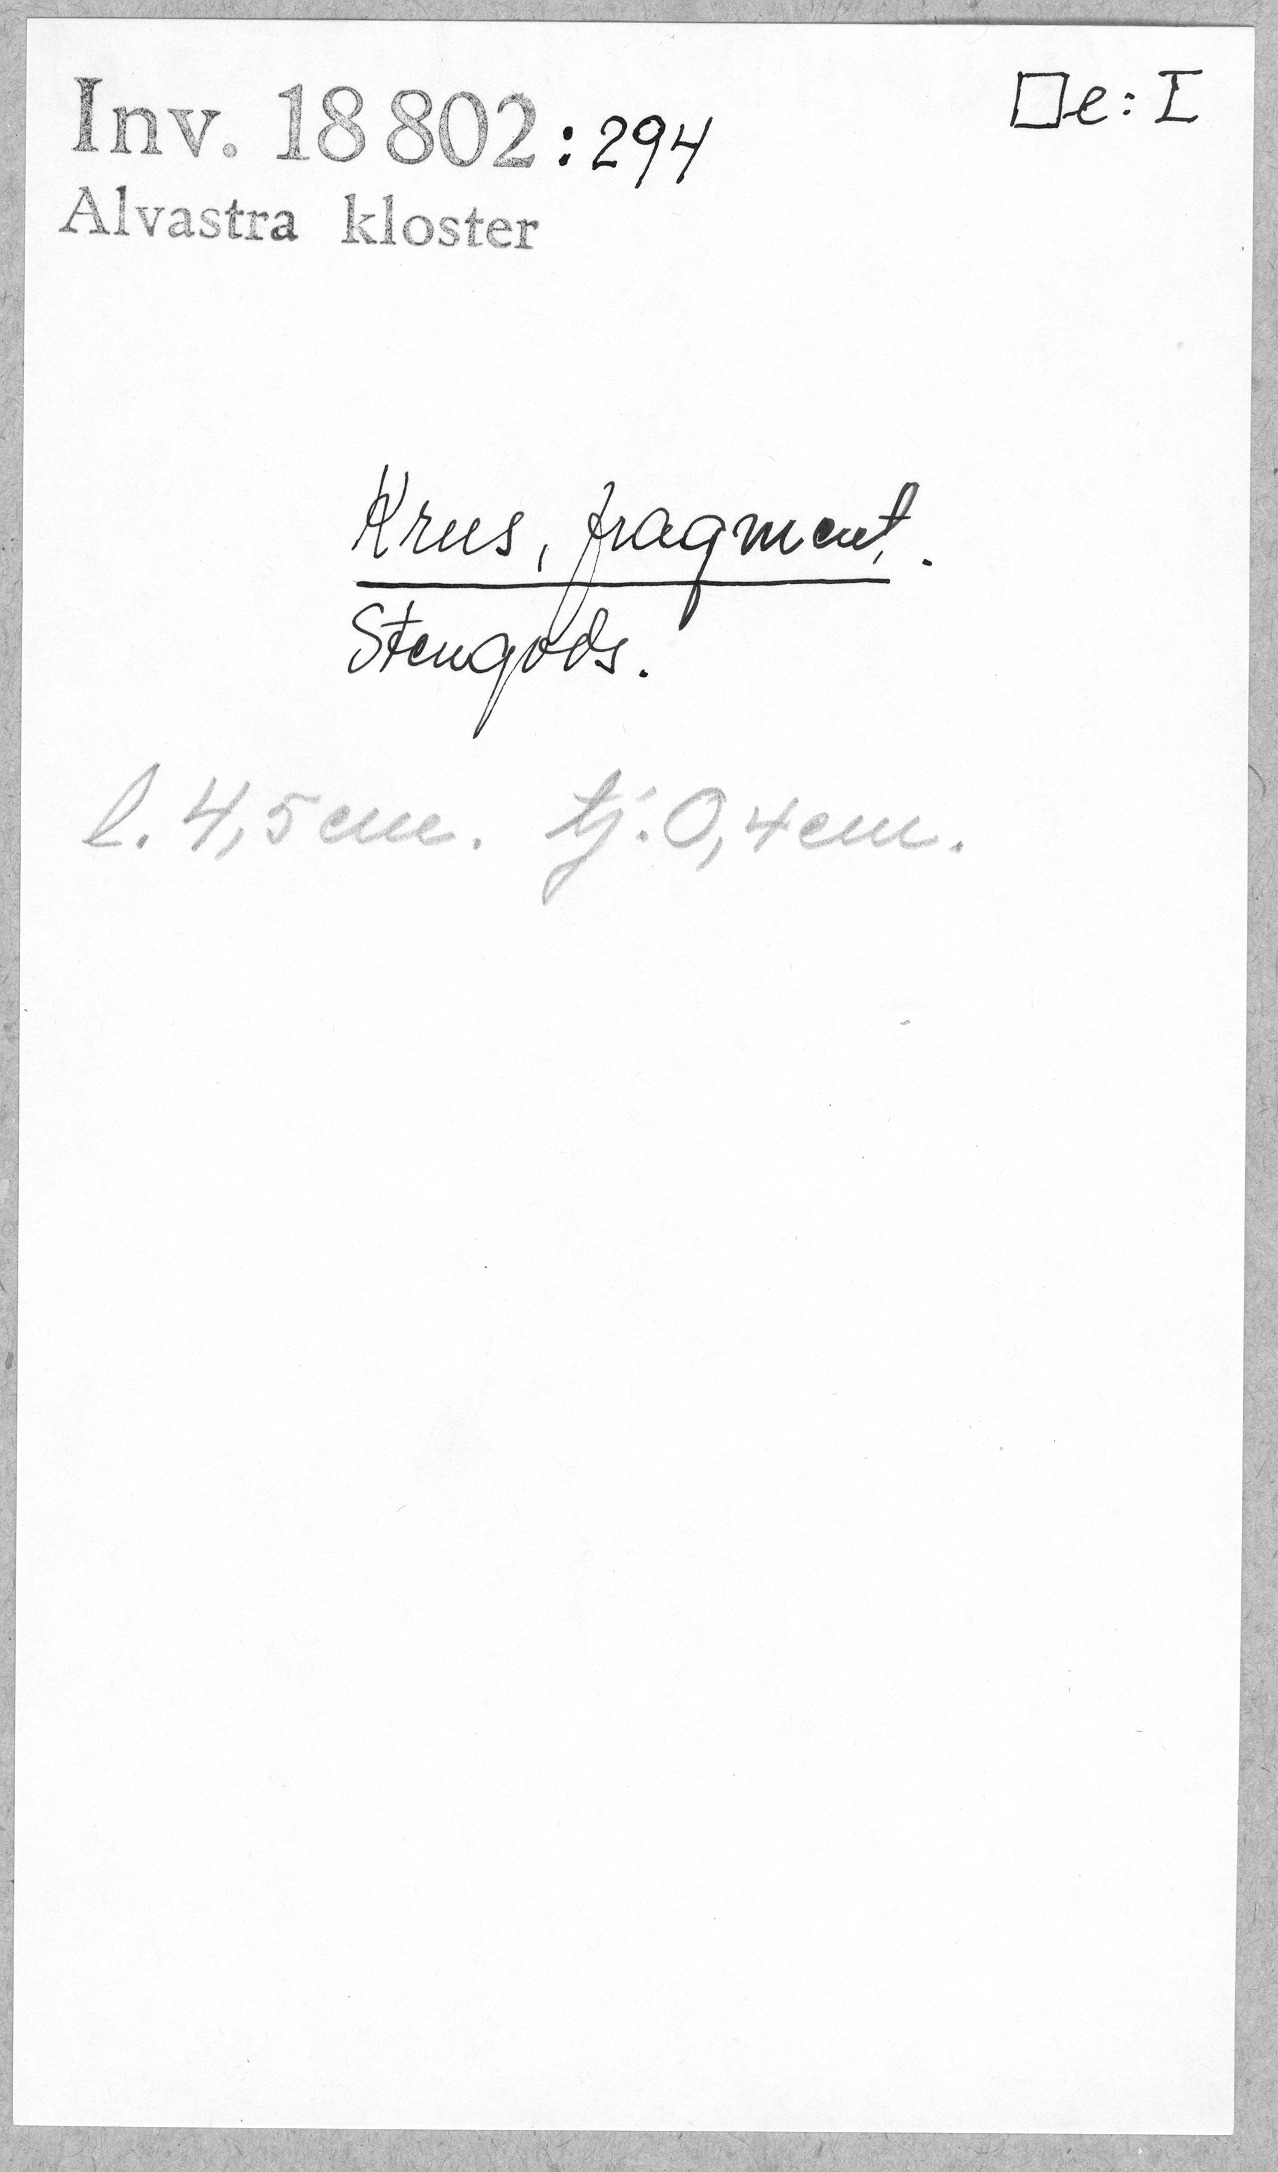 Inv. 18 802 :294
□e: I
Alvastra kloster
Krus, fragment.
Stengods.
l. 4,5 cm. tj. 0,4 cm.